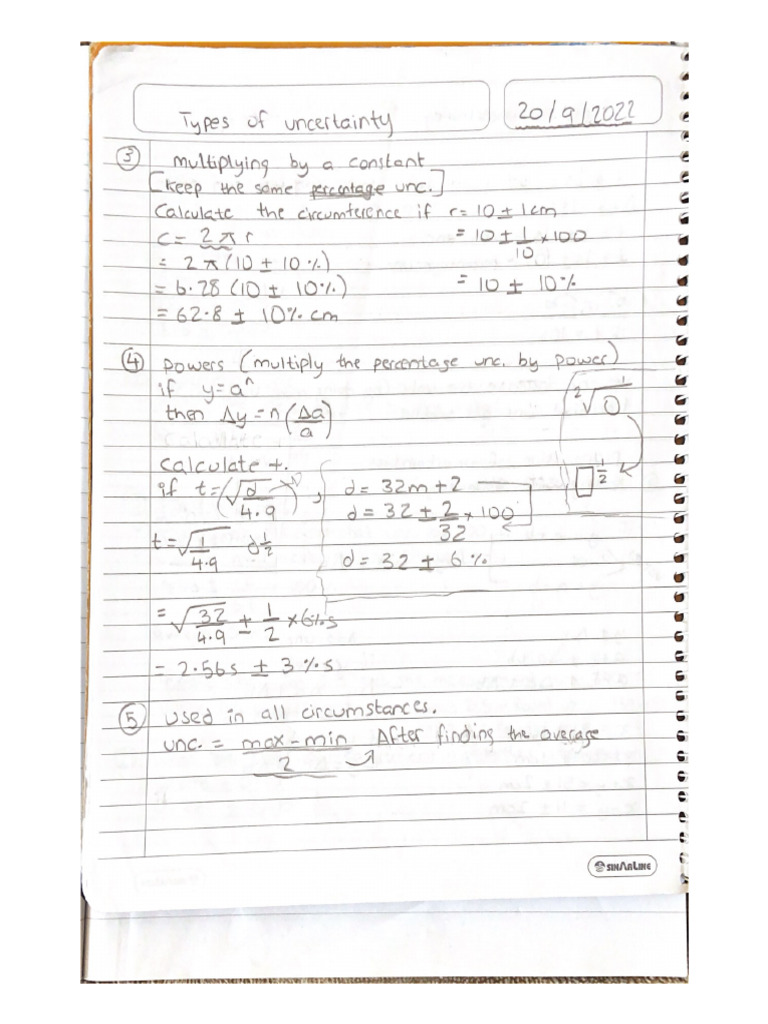 Types of uncertainty
20/9/2022
③ multiplying by a constant
[keep the same percentage unc.]
Calculate the circumference if r = 10 ± 1cm
C = 2πr = 10 ± 1/10 × 100
= 2π(10 ± 10%)
= 6.28 (10 ± 10%) = 10 ± 10%
= 62.8 ± 10% cm
④ Powers (multiply the percentage unc. by power)
if y = aⁿ
then Δy = n(Δa/a)
²√0¹
□^1/2
Calculate t.
if t = (√d/4.9), d = 32m ± 2
d = 32 ± 2/32 × 100
t = √1/4.9 d^1/2
d = 32 ± 6%
= √32/4.9 ± 1/2 × 6% s
= 2.56s ± 3% s
⑤ Used in all circumstances.
unc. = max - min / 2 After finding the average
SINARLINE